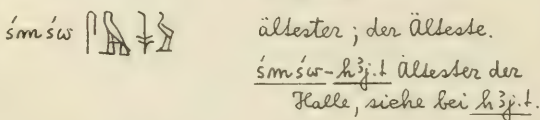 śmśw 𓋴𓅓𓇓𓀗 ältester; der Älteste.
śmśw-h³j.t Ältester der
Halle, siehe bei h³j.t.